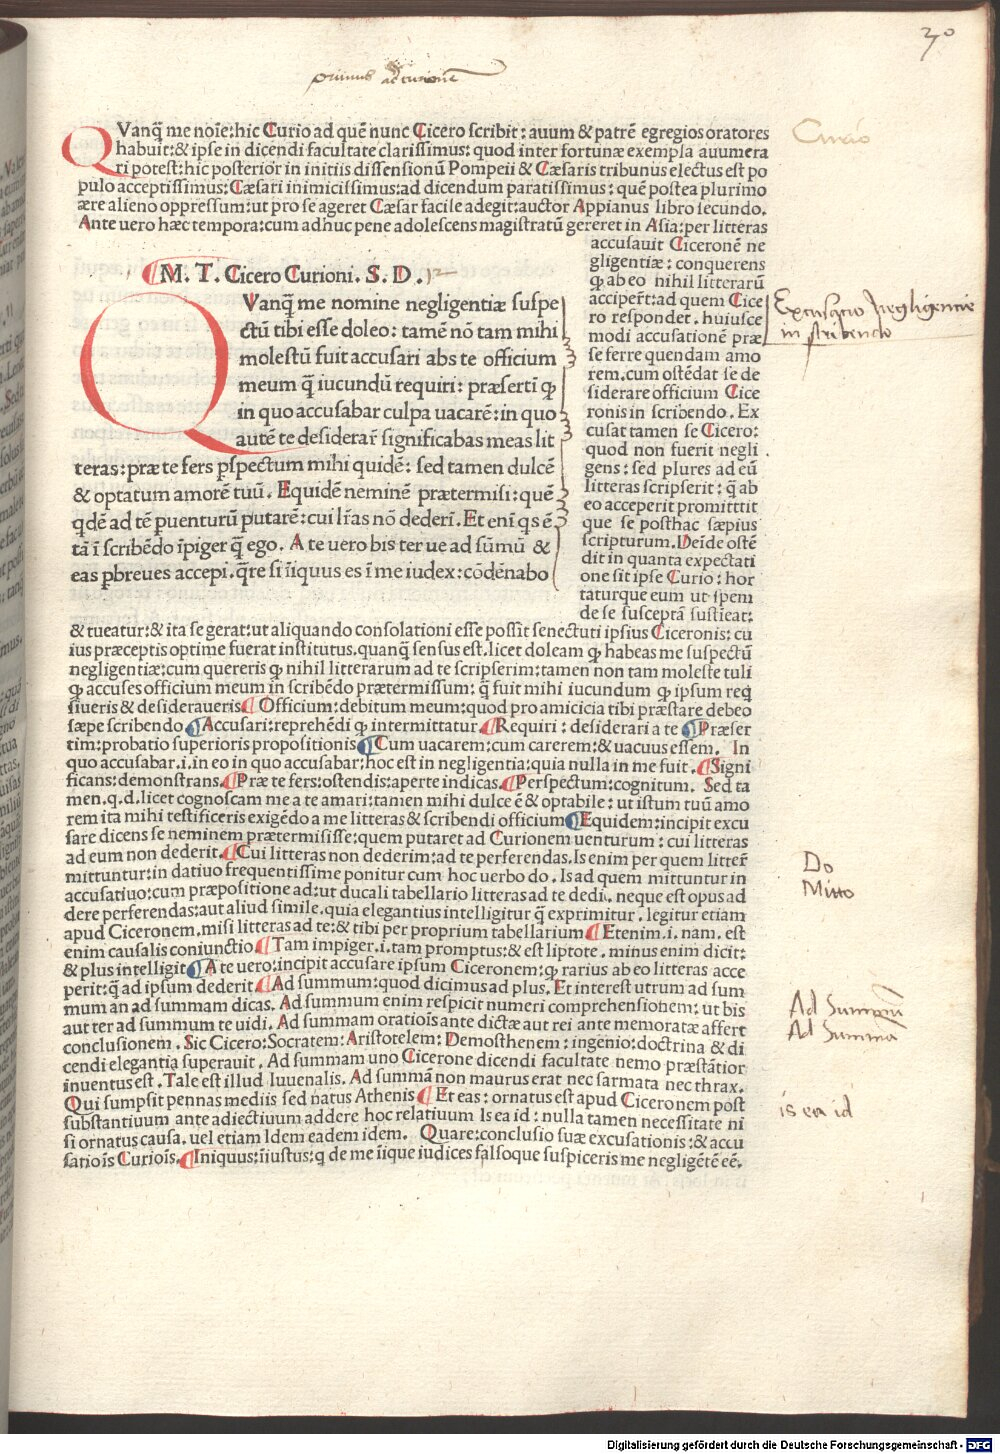 30
primus ad curionē
QVanq̄ me noīe: hic Curio ad quē nunc Cicero scribit: auum & patrē egregios oratores
habuit: & ipse in dicendi facultate clarissimus: quod inter fortunæ exempla auumera
ri potest: hic posterior in initiis dissensionū Pompeii & Cæsaris tribunus electus est po
pulo acceptissimus: Cæsari inimicissimus: ad dicendum paratissimus: quē postea plurimo
ære alieno oppressum: ut pro se ageret Cæsar facile adegit: auctor Appianus libro secundo.
Ante uero hæc tempora: cum adhuc pene adolescens magistratū gereret in Asia: per litteras
Curio
accusauit Ciceronē ne
gligentiæ: conquerens
ꝙ ab eo nihil litterarū
acciperet: ad quem Cice
ro respondet. huiusce
modi accusationē præ
se ferre quendam amo
rem. cum ostēdat se de
siderare officium Cice
ronis in scribendo. Ex
cusat tamen se Cicero:
quod non fuerit negli
gens: sed plures ad eū
litteras scripserit: q̄ ab
eo acceperit promitttit
que se posthac sæpius
scripturum. Deīde ostē
dit in quanta expectati
one sit ipse Curio: hor
taturque eum ut spem
de se susceptā sustieat:
Excusatio negligentie
in scribendo
M. T. Cicero Curioni. S. D. 12
QVanq̄ me nomine negligentiæ suspe
ctū tibi esse doleo: tamē nō tam mihi
molestū fuit accusari abs te officium
meum q̄ iucundū requiri: præserti ꝙ
in quo accusabar culpa uacarē: in quo
autē te desiderar̄ significabas meas lit
teras: præ te fers ꝑspectum mihi quidē: sed tamen dulcē
& optatum amorē tuū. Equidē neminē prætermisi: quē
qdē ad tē ꝑuenturū putarē: cui lr̄as nō dederī. Et enī qs ē
tā ī scribēdo īpiger q̄ ego. A te uero bis ter ue ad sūmū &
eas ꝑbreues accepi. q̄re si īiquus es ī me iudex: cōdēnabo
& tueatur: & ita se gerat: ut aliquando consolationi esse possit senectuti ipsius Ciceronis: cu
ius præceptis optime fuerat institutus. quanq̄ sensus est. licet doleam ꝙ habeas me suspectū
negligentiæ: cum quereris ꝙ nihil litterarum ad te scripserim: tamen non tam moleste tuli
ꝙ accuses officium meum in scribēdo prætermissum: q̄ fuit mihi iucundum ꝙ ipsum req
siueris & desideraueris ¶ Officium: debitum meum: quod pro amicicia tibi præstare debeo
sæpe scribendo ¶ Accusari: reprehēdi ꝙ intermittatur. ¶ Requiri: desiderari a te ¶ Præser
tim: probatio superioris propositionis ¶ Cum uacarem: cum carerem: & uacuus essem. In
quo accusabar. i. in eo in quo accusabar: hoc est in negligentia: quia nulla in me fuit. ¶ Signi
ficans: demonstrans. ¶ Præ te fers: ostendis: aperte indicas. ¶ Perspectum: cognitum. Sed ta
men. q. d. licet cognoscam me a te amari: tamen mihi dulce ē & optabile: ut istum tuū amo
rem ita mihi testificeris exigēdo a me litteras & scribendi officium ¶ Equidem: incipit excu
sare dicens se neminem prætermisisse: quem putaret ad Curionem uenturum: cui litteras
ad eum non dederit. ¶ Cui litteras non dederim: ad te perferendas. Is enim per quem litter̄
mittuntur: in datiuo frequentissime ponitur cum hoc uerbo do. Is ad quem mittuntur in
accusatiuo: cum præpositione ad: ut ducali tabellario litteras ad te dedi. neque est opus ad
dere perferendas: aut aliud simile. quia elegantius intelligitur q̄ exprimitur. legitur etiam
apud Ciceronem, misi litteras ad te: & tibi per proprium tabellarium ¶ Etenim. i. nam. est
enim causalis coniunctio ¶ Tam impiger. i. tam promptus: & est liptote. minus enim dicit:
& plus intelligit ¶ A te uero: incipit accusare ipsum Ciceronem: ꝙ rarius ab eo litteras acce
perit: q̄ ad ipsum dederit ¶ Ad summum: quod dicimus ad plus. Et interest utrum ad sum
mum an ad summam dicas. Ad summum enim respicit numeri comprehensionem: ut bis
aut ter ad summum te uidi. Ad summam oratiois ante dictæ aut rei ante memoratæ affert
conclusionem. Sic Cicero: Socratem: Aristotelem: Demosthenem: ingenio: doctrina & di
cendi elegantia superauit. Ad summam uno Cicerone dicendi facultate nemo præstātior
inuentus est. Tale est illud Iuuenalis. Ad summā non maurus erat nec sarmata nec thrax.
Qui sumpsit pennas mediis sed natus Athenis ¶ Et eas: ornatus est apud Ciceronem post
substantiuum ante adiectiuum addere hoc relatiuum Is ea id: nulla tamen necessitate ni
si ornatus causa. uel etiam Idem eadem idem. Quare: conclusio suæ excusationis: & accu
satiois Curiois. ¶ Iniquus: iiustus: q de me iique iudices falsoque suspiceris me negligētē eē.
Do
Mitto
Ad Summum
Ad Summā
is ea id
Digitalisierung gefördert durch die Deutsche Forschungsgemeinschaft - DFG